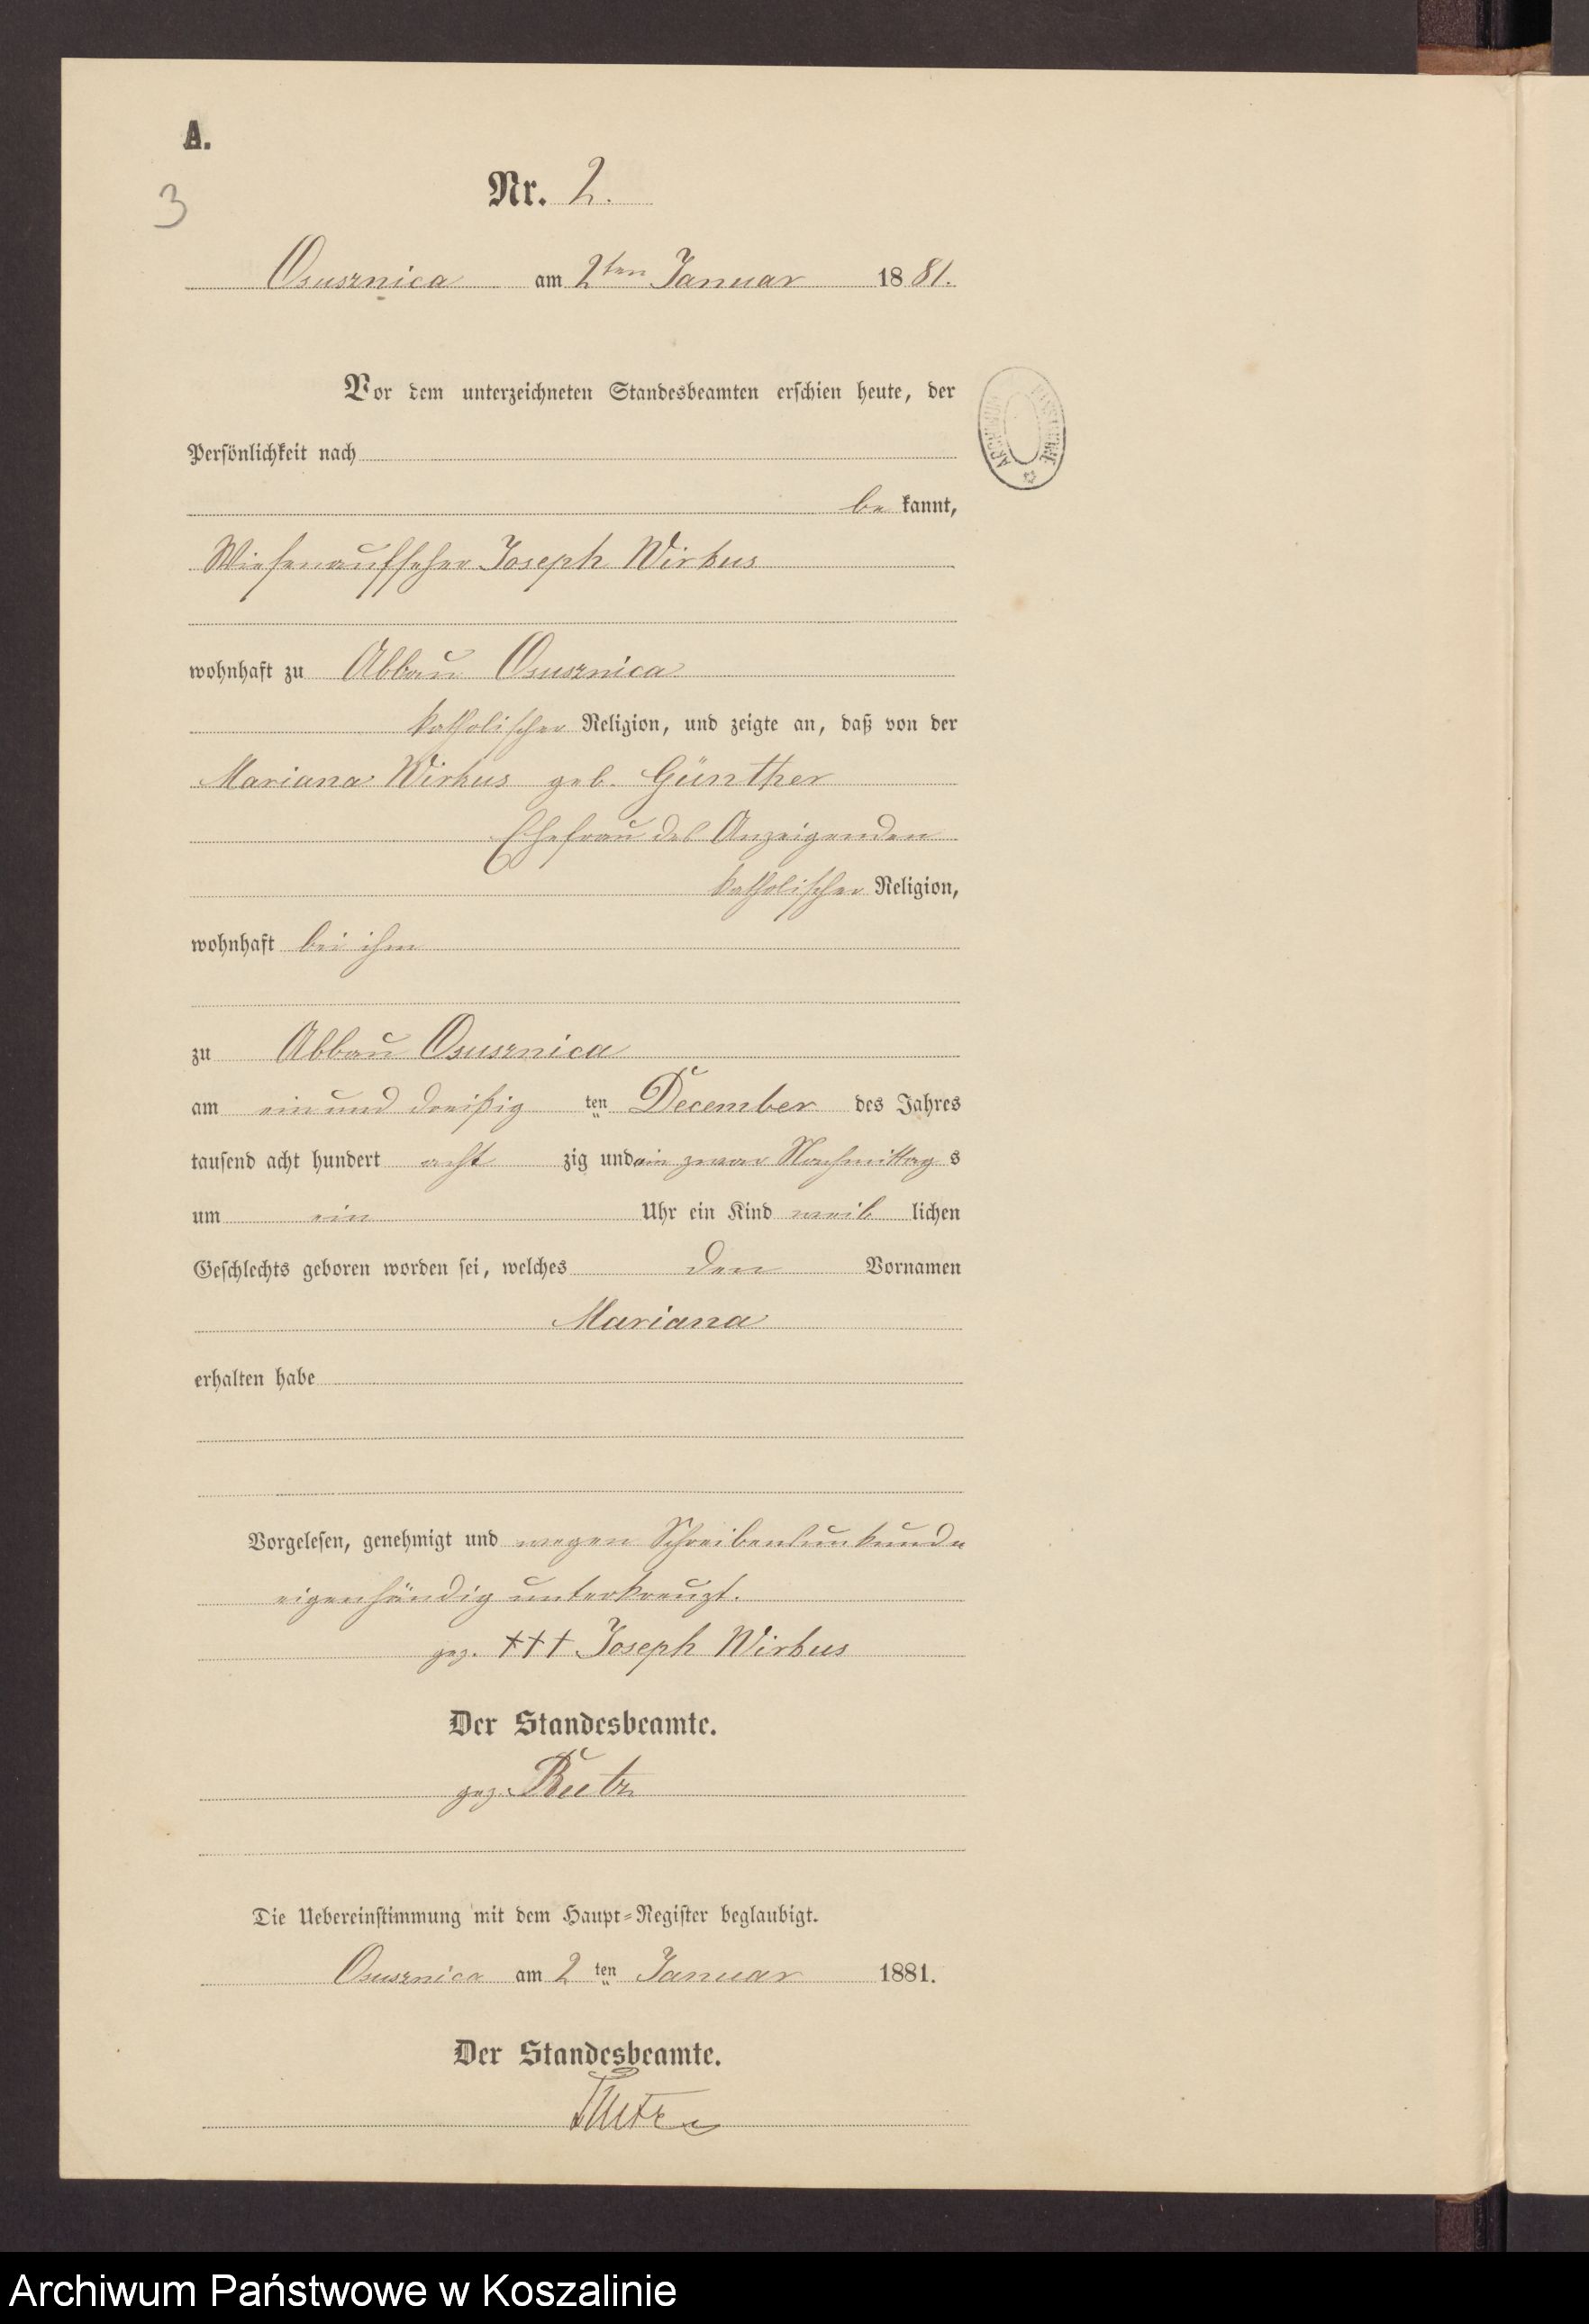 A.
3
Nr. 2.
Osusznica am 2ten Januar 1881.
Vor dem unterzeichneten Standesbeamten erschien heute, der
Persönlichkeit nach
be kannt,
Wiesenaufseher Joseph Wirkus
wohnhaft zu Abbau Osusznica
katholischer Religion, und zeigte an, daß von der
Mariana Wirkus geb. Günther
Ehefrau des Anzeigenden
katholischer Religion,
wohnhaft bei ihm
zu Abbau Osusznica
am ein und dreißig ten December des Jahres
tausend acht hundert acht zig und zwar Nachmittag s
um ein Uhr ein Kind weib lichen
Geschlechts geboren worden sei, welches den Vornamen
Mariana
erhalten habe
Vorgelesen, genehmigt und wegen Schreibensunkunde
eigenhändig unterkreuzt.
gez. +++ Joseph Wirkus
Der Standesbeamte.
gez.
Die Uebereinstimmung mit dem Haupt=Register beglaubigt.
Osusznica am 2 ten Januar 1881.
Der Standesbeamte.
Archiwum Państwowe w Koszalinie